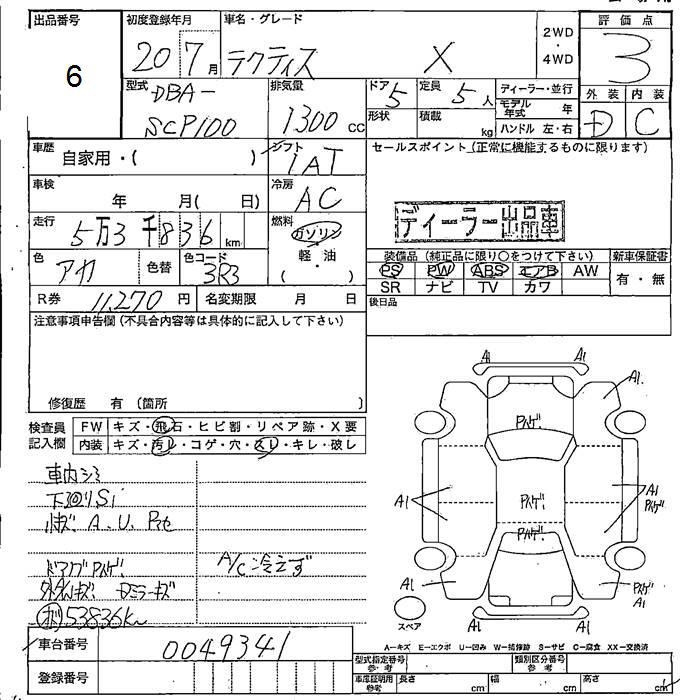 出品番号
6
初度登録年月
20 7月
車名・グレード
X
2WD
・
4WD
評価点
3
型式
DBA-
SCP100
排気量
1300cc
ドア
5
定員
5人
形状
積載
kg
ディーラー・並行
モデル年式 年
ハンドル 左・右
外装 内装
D C
車歴
自家用・( )
シフト
IAT
セールスポイント(正常に機能するものに限ります)
車検
年 月( 日)
冷房
AC
ディーラー出品車
走行
5万3千836km
燃料
ガソリン
軽・油
( )
色
アカ
色替
色コード
3R3
装備品(純正品に限り○をつけて下さい) 新車保証書
PS PW ABS エアB AW
SR ナビ TV カワ
有・無
R券 11,270円 名変期限 月 日
後日品
注意事項申告欄(不具合内容等は具体的に記入して下さい)
修復歴 有(箇所
検査員記入欄
FW キズ・飛石・ヒビ割・リペア跡・X要
内装 キズ・汚レ・コゲ・穴・スレ・キレ・破レ
車内シミ
下回りSi
A. U.
A/C冷えず
53836km
車台番号 0049341
登録番号
A1 A1
A1
パハゲ
A1
パハゲ
A1
パハゲ
パハゲ
A1
パハゲ
A1
A1 A1
スペア
A−キズ E−エクボ U−凹み W−補修跡 S−サビ C−腐食 XX−交換済
型式指定番号 参考
類別区分番号 参考
車庫証明用 参考 長さ cm 幅 cm 高さ cm